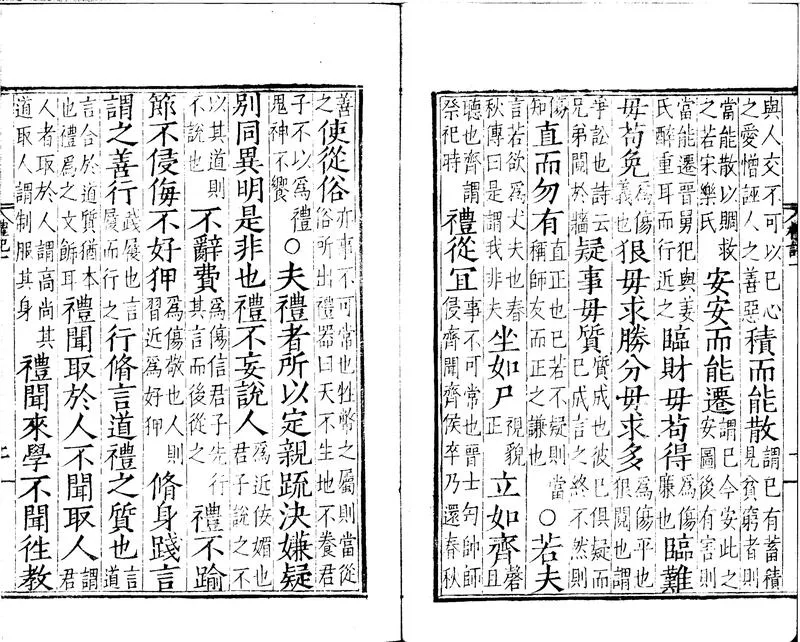 與人交不可以已心之愛憎誣人之善惡積而能散謂已有蓄積見貧窮者則
當能散以賙救之若宋樂氏安安而能遷謂已今安此之安圖後有害則
當能遷晉舅犯與姜氏醉重耳而行近之臨財毋苟得為傷廉也臨難
毋苟免為傷義也狠毋求勝分毋求多為傷平也狠鬩也謂
爭訟也詩云兄弟鬩於牆疑事毋質質成也彼已俱疑而已成言之終不然則
傷知直而勿有直正也已若不疑則當稱師友而正之謙也○若夫
言若欲為丈夫也春秋傳曰是謂我非夫坐如尸視貌正立如齊磬且
聽也齊謂祭祀時禮從宜事不可常也晉士匄帥師侵齊聞齊侯卒乃還春秋
善之使從俗亦事不可常也牲幣之屬則當從俗所出禮器曰天不生地不養君
子不以為禮鬼神不饗○夫禮者所以定親疏決嫌疑
別同異明是非也禮不妄說人為近佞媚也君子說之不
以其道則不說也不辭費為傷信君子先行其言而後從之禮不踰
節不侵侮不好狎為傷敬也人則習近為好狎脩身踐言
謂之善行踐履也言履而行之行脩言道禮之質也言道
言合於道質猶本也禮為之文飾耳禮聞取於人不聞取人謂君
人者取於人謂高尚其道取人謂制服其身禮聞來學不聞往教